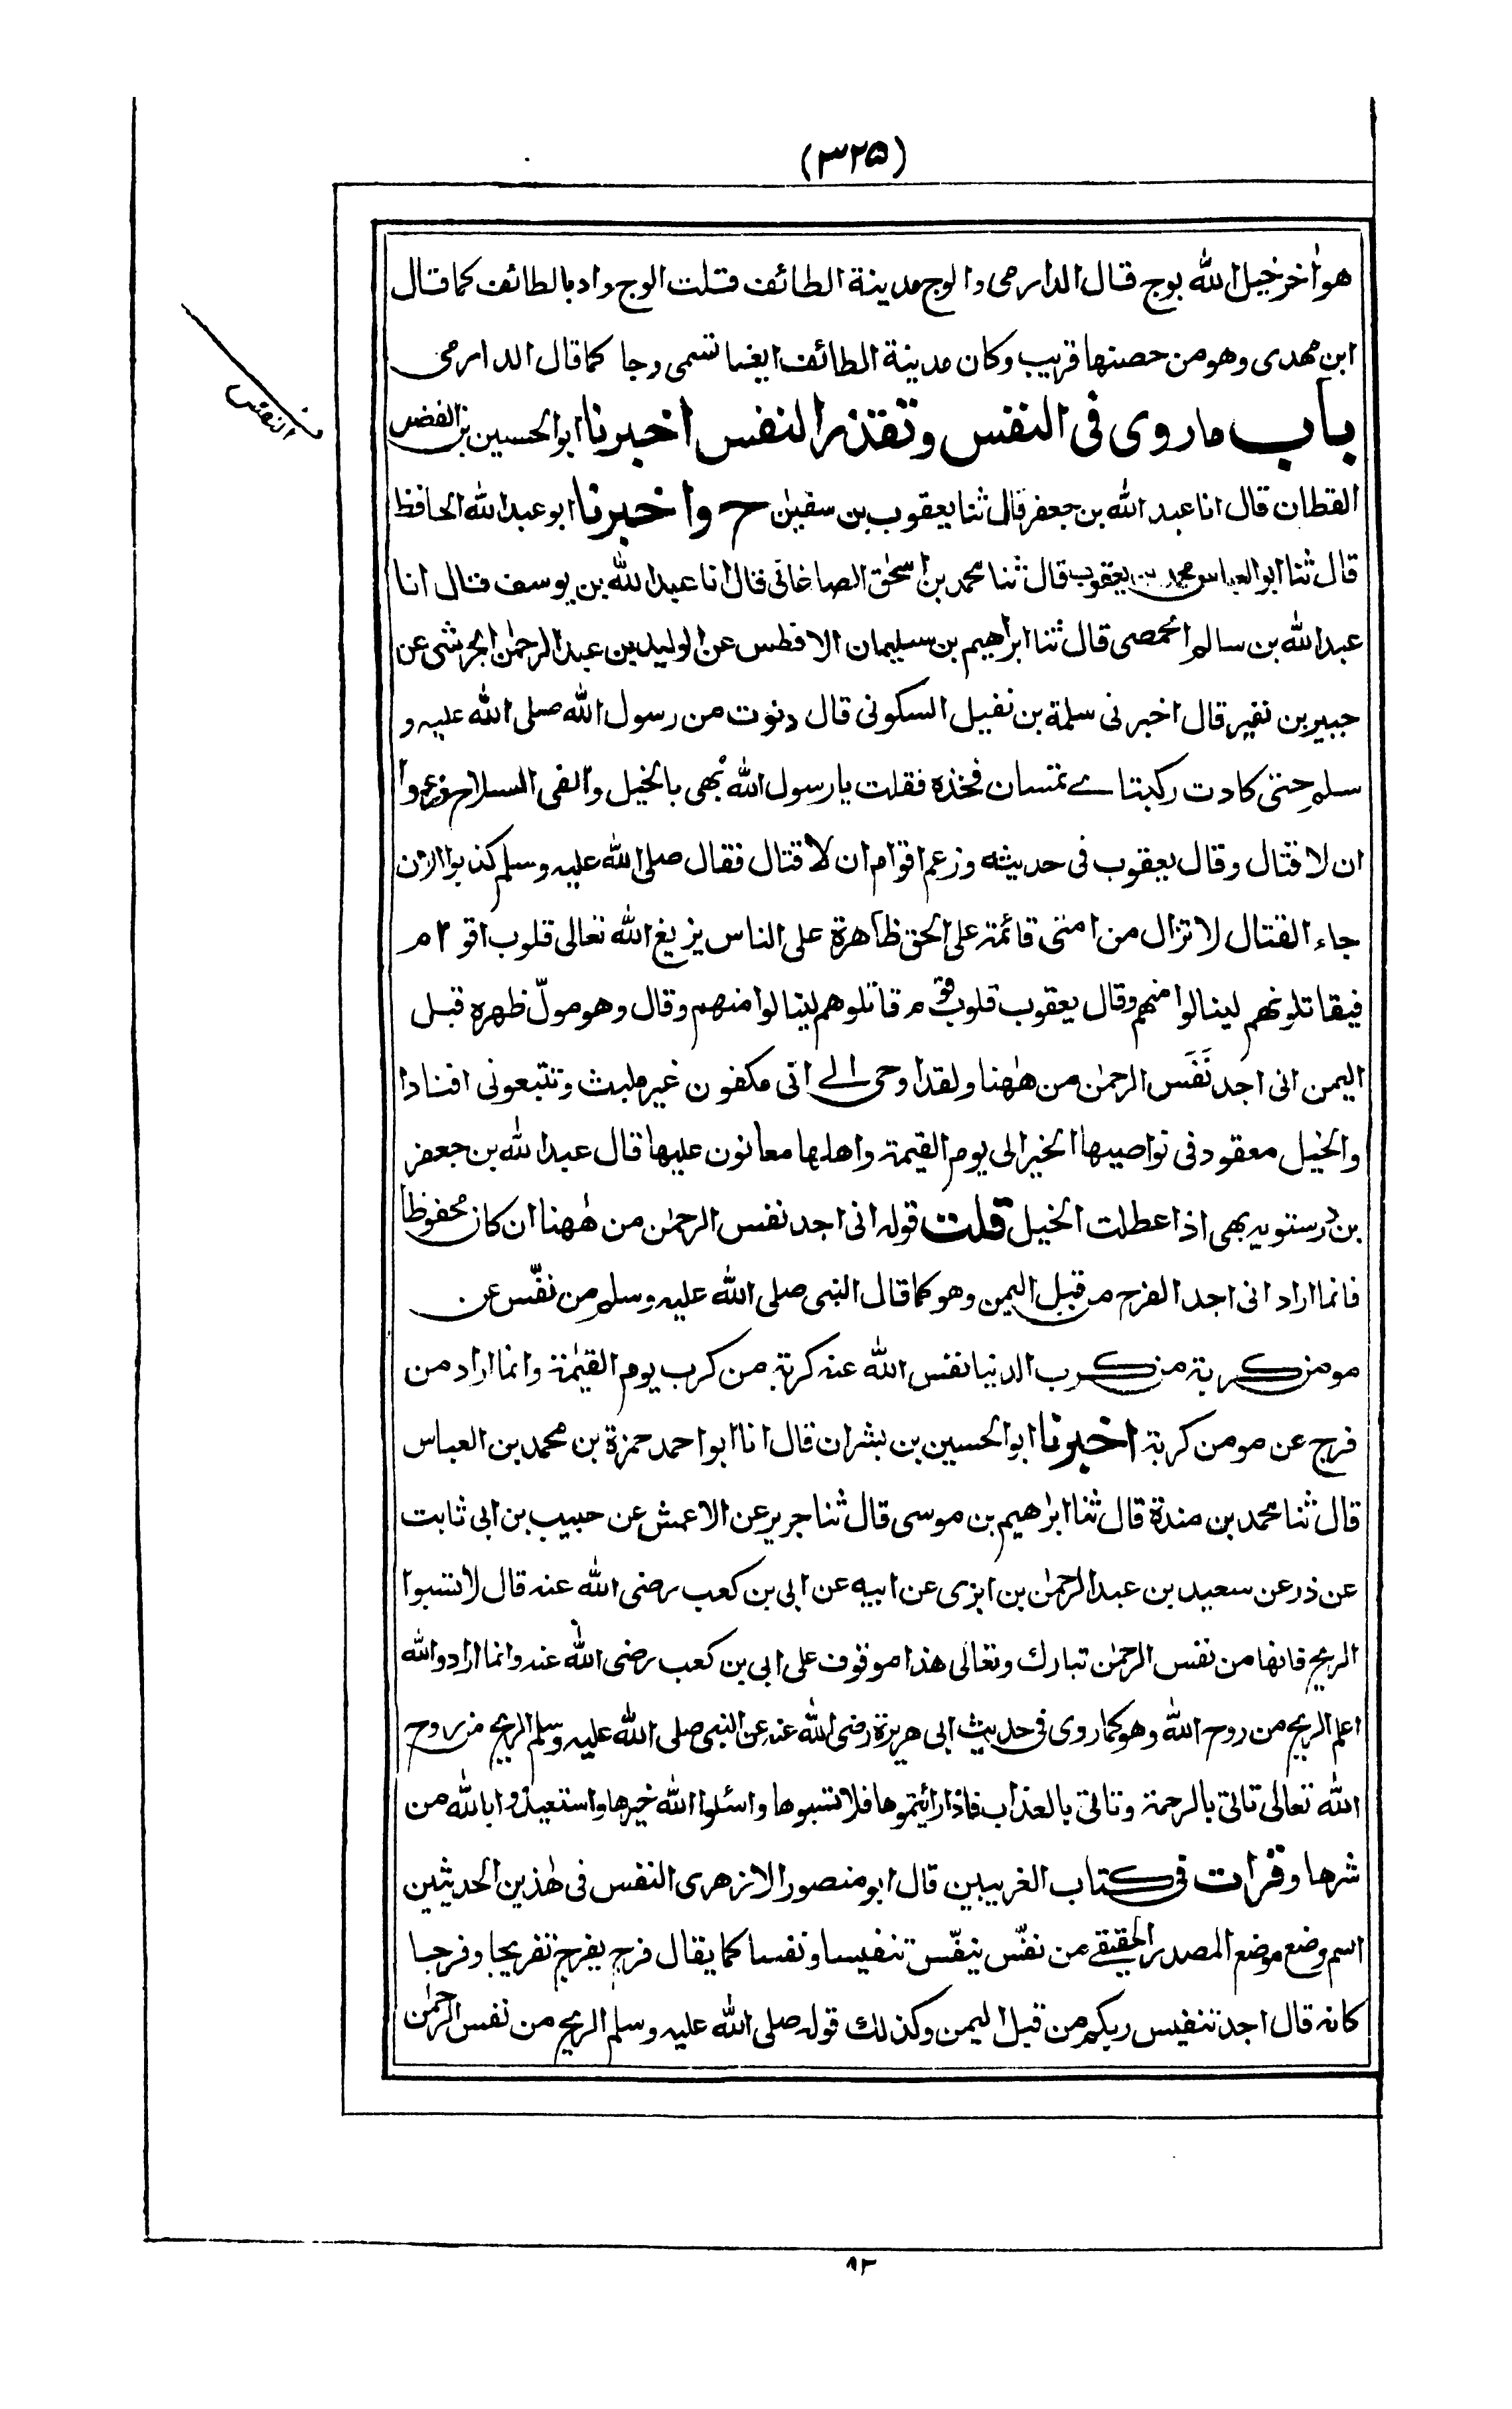 (۳۲۵)
هو اٰخر خيل الله بوج قال الدارمى والوج مدينة الطائف قلت الوج واد بالطائف كما قال
ابن مهدى وهو من حصنها قريب وكان مدينة الطائف ايضا تسمى وجا كما قال الدارمى
باب ما روى فى النفس وتقذر النفس اخبرنا ابو الحسين بن الفضل
النفس
القطان قال انا عبد الله بن جعفر قال ثنا يعقوب بن سفيٰن ح واخبرنا ابو عبد الله الحافظ
قال ثنا ابو العباس محمد بن يعقوب قال ثنا محمد بن اسحٰق الصاغانى قال انا عبد الله بن يوسف قال انا
عبد الله بن سالم الحمصى قال ثنا ابراهيم بن سليمان الافطس عن الوليد بن عبد الرحمٰن الجرشى عن
جبير بن نفير قال اخبرنى سلمة بن نفيل السكونى قال دنوت من رسول الله صلى الله عليه و
سلم حتى كادت ركبتاے تمسان فخذه فقلت يا رسول الله بُهى بالخيل والقى السلاح وزعموا
ان لا قتال وقال يعقوب فى حديثه وزعم اقوام ان لا قتال فقال صلى الله عليه وسلم كذبوا الاٰن
جاء القتال لا تزال من امتى قائمة على الحق ظاهرة على الناس يزيغ الله تعالى قلوب اقوام
فيقاتلونهم لينالوا منهم وقال يعقوب قلوب قوم قاتلوهم لينالوا منهم وقال وهو مولّ ظهره قبل
اليمن انى اجد نَفَسَ الرحمٰن من هٰهنا ولقد اوحى الے انى مكفون غير ملبث وتتبعونى افنادا
والخيل معقود فى نواصيها الخير الى يوم القيمة واهلها معانون عليها قال عبد الله بن جعفر
بن درستويه بهى اذا عطلت الخيل قلت قوله انى اجد نفس الرحمٰن من هٰهنا ان كان محفوظا
فانما اراد انى اجد الفرج من قبل اليمن وهو كما قال النبى صلى الله عليه وسلم من نفّس عن
مومن كربة من كرب الدنيا نفس الله عنه كربة من كرب يوم القيٰمة وانما اراد من
فرج عن مومن كربة اخبرنا ابو الحسين بن بشران قال انا ابو احمد حمزة بن محمد بن العباس
قال ثنا محمد بن مندة قال ثنا ابرٰهيم بن موسى قال ثنا جرير عن الاعمش عن حبيب بن ابى ثابت
عن ذر عن سعيد بن عبد الرحمٰن بن ابزى عن ابيه عن ابى بن كعب رضى الله عنه قال لا تسبوا
الريح فانها من نفس الرحمٰن تبارك وتعالى هذا موقوف على ابى بن كعب رضى الله عنه وانما اراد والله
اعلم الريح من روح الله وهو كما روى فى حديث ابى هريرة رضى الله عنه عن النبى صلى الله عليه وسلم الريح من روح
الله تعالى تاتى بالرحمة وتاتى بالعذاب فاذا رائيتموها فلا تسبوها واسئلوا الله خيرها واستعيذوا بالله من
شرها وقرات فى كتاب الغريبين قال ابو منصور الازهرى النفس فى هٰذين الحديثين
اسم وضع موضع المصدر الحقيقے من نفّس ينفّس تنفيسا ونفسا كما يقال فرج يفرج تفريجا وفرجا
كانه قال اجد تنفيس ربكم من قبل اليمن وكذلك قوله صلى الله عليه وسلم الريح من نفس الرحمٰن